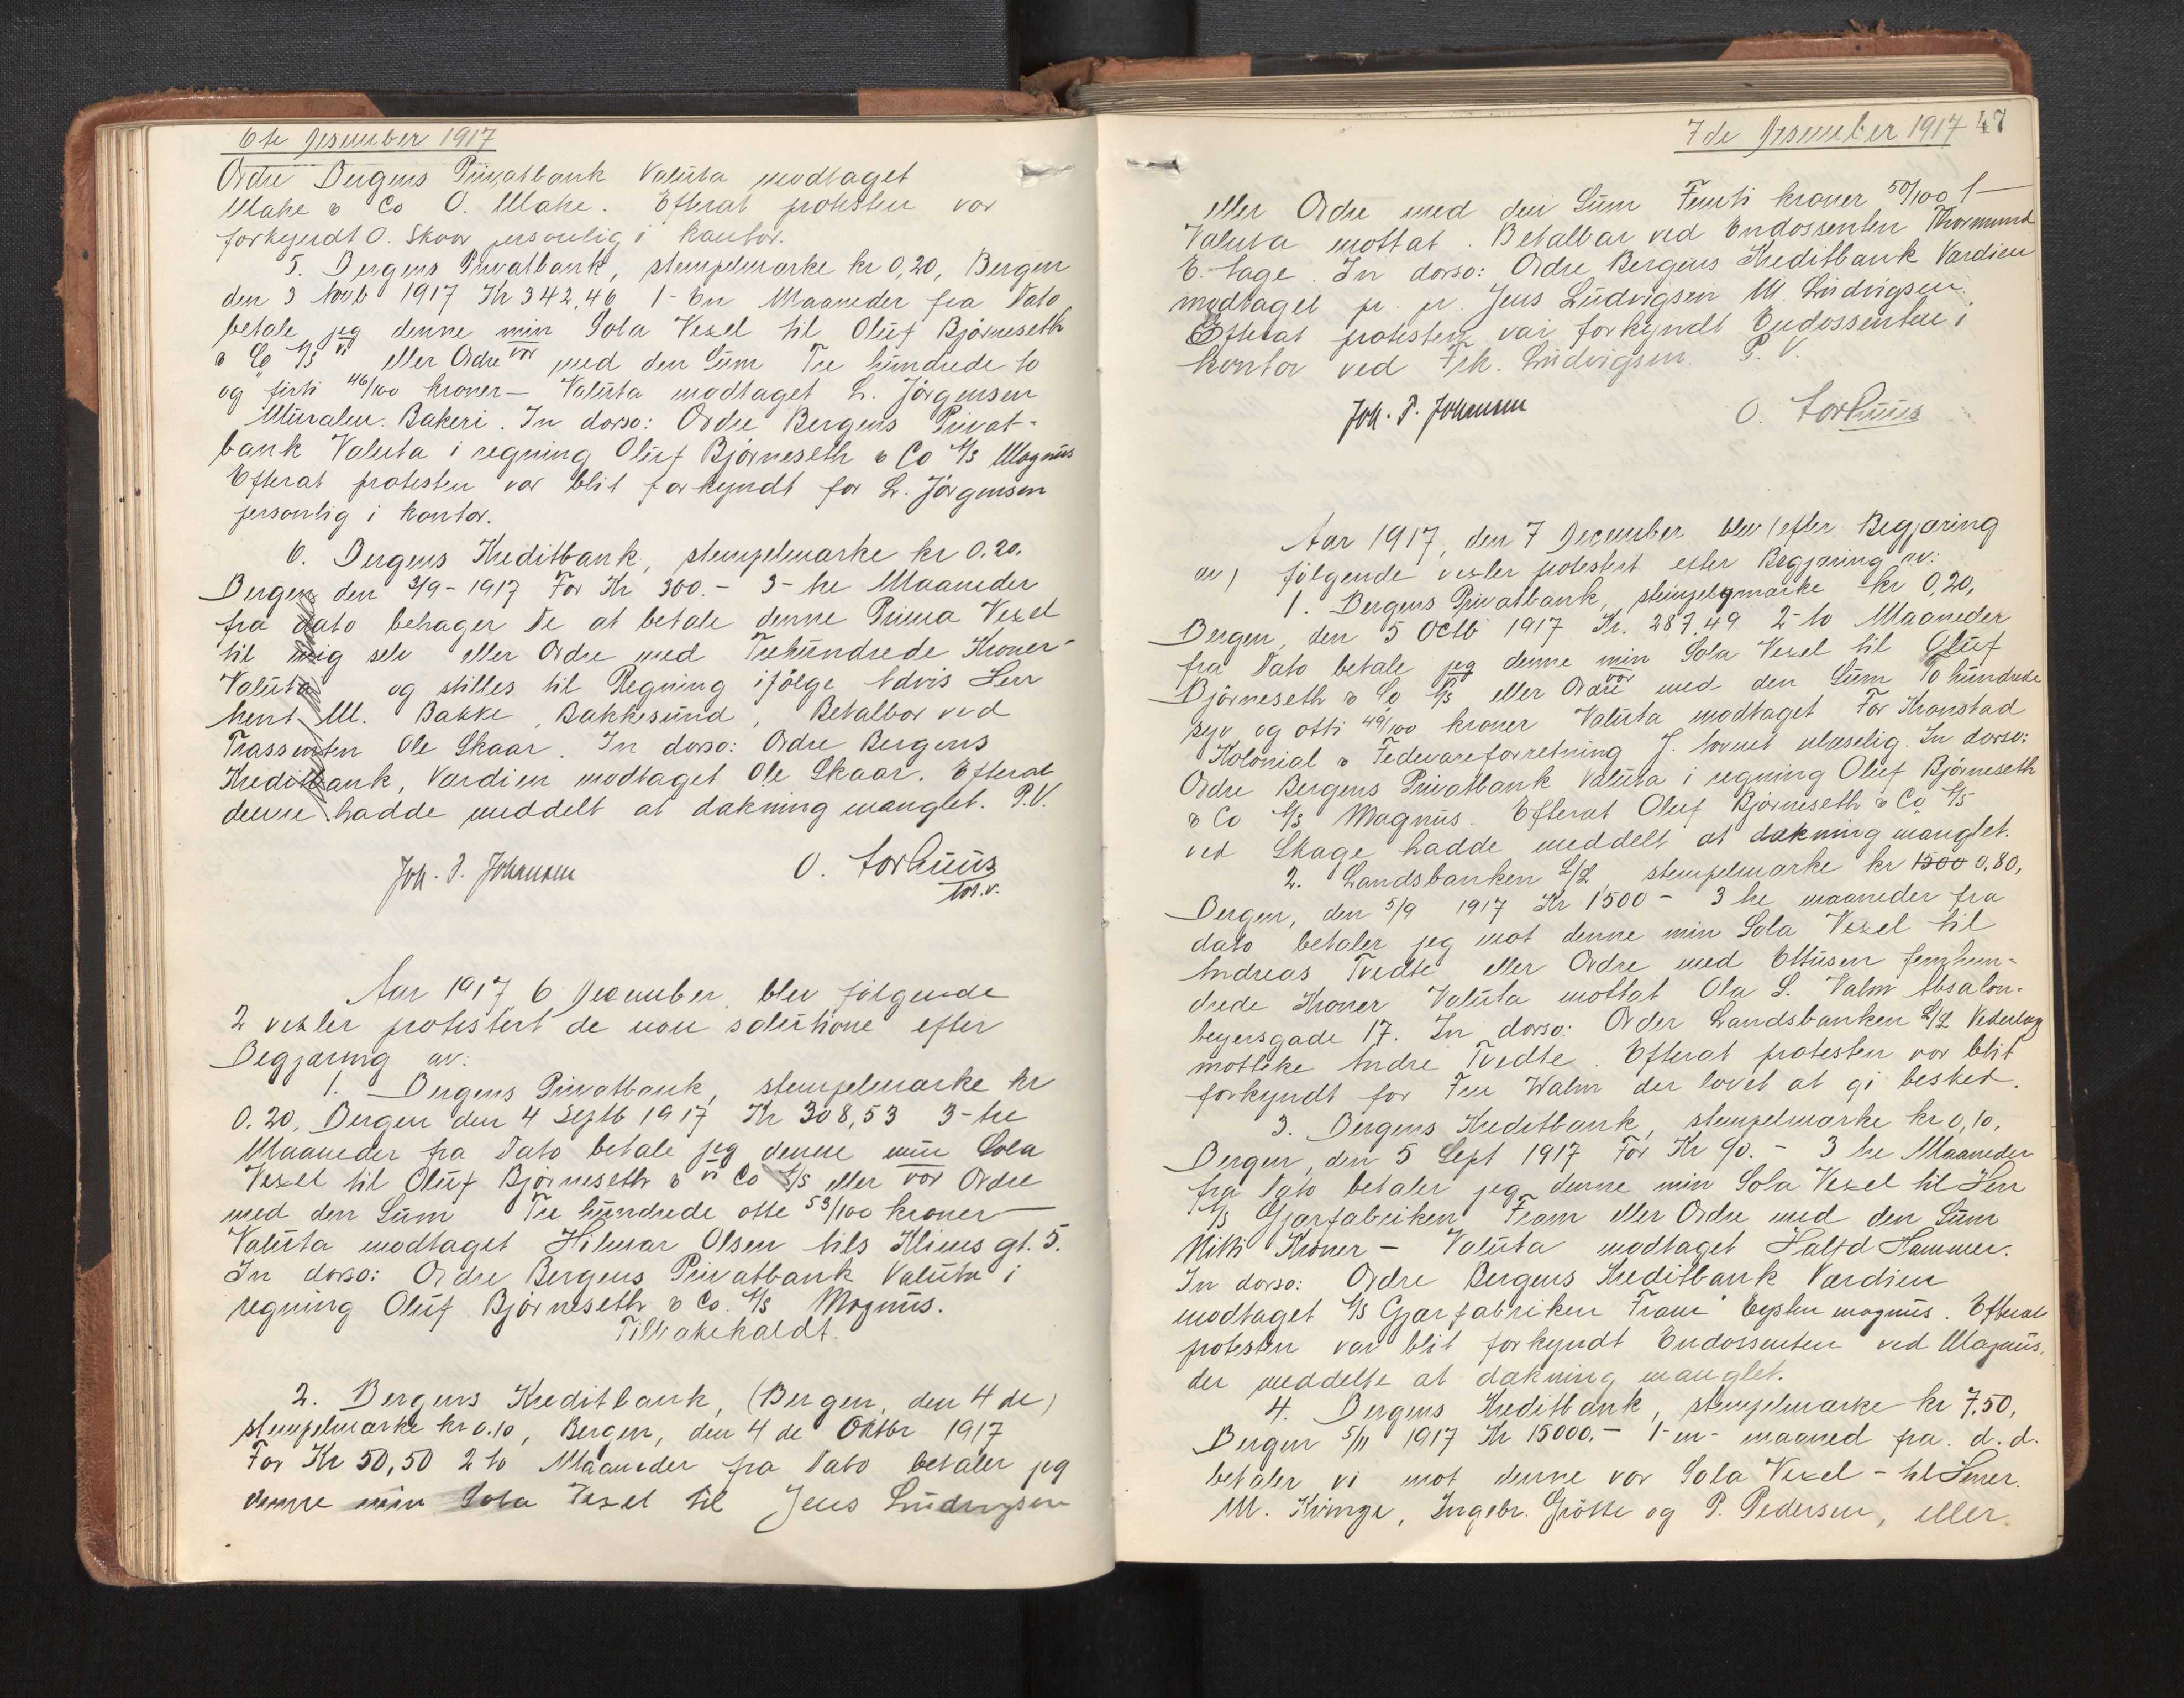 6te Desember 1917
Ordre Bergens Privatbank Valuta modtaget
Make & Co O. Make. Efterat protesten var
forkyndt O. Skaar personlig i kontor.
5. Bergens Privatbank, stempelmarke kr 0,20, Bergen
den 3 Novb 1917 Kr 342,46 1- En Maaneder fra Dato
betale jeg denne min Sola Vexel til Oluf Bjørneseth
vi vor
& Co A/S eller Ordre med den Sum Tre hundrede to
og firti 46/100 kroner — Valuta modtaget L. Jørgensen
Muralm. Bakeri. In dorso: Ordre Bergens Privat-
bank Valuta i regning Oluf Bjørneseth & Co A/S Magnus
Efterat protesten var blit forkyndt for L. Jørgensen
personlig i kontor.
6. Bergens Kreditbank, stempelmarke kr 0.20.
Bergen den 3/9 - 1917 For Kr 300.- 3- tre Maaneder
fra dato behager De at betale denne Prima Vexel
til mig selv eller Ordre med Trehundrede Kroner-
Valuta og stilles til Regning ifølge Advis Herr
hent M. Bakke, Bakkesund, Betalbar ved
Trassenten Ole Skaar. In dorso: Ordre Bergens
Kreditbank, Værdien modtaget Ole Skaar. Efterat
denne hadde meddelt at dækning manglet. P.V.
Joh. P. Johansen O. Aarhuus
tos.v.
Aar 1917 6 December blev følgende
2 vexler protestert de non solutione efter
Begjæring av:
1. Bergens Privatbank, stempelmarke kr
0.20, Bergen den 4 Septb 1917 Kr 308,53 3-tre
Maaneder fra Dato betale jeg denne min Sola
Vexel til Oluf Bjørneseth & vi Co A/S eller vor Ordre
med den Sum Tre hundrede otte 53/100 kroner —
Valuta modtaget Hilmar Olsen tils Klims gt. 5.
In dorso: Ordre Bergens Privatbank Valuta i
regning Oluf Bjørneseth & Co. A/S Magnus.
Tilbakekaldt.
2. Bergens Kreditbank, (Bergen, den 4 de)
stempelmarke kr 0.10, Bergen, den 4 de Oktbr 1917
For Kr 50,50 2 to Maaneder fra Dato betaler jeg
denne min Sola Vexel til Jens Ludvigsen
7de Desember 1917 47
eller Ordre med den Sum Femti kroner 50/100 /—
Valuta mottat. Betalbar ved Endossenten Thormund
E. Aage. In dorso: Ordre Bergens Kreditbank Værdien
modtaget pr. pr. Jens Ludvigsen M. Ludvigsen.
Efterat protesten var forkyndt Endossenten i
kontor ved Frk. Ludvigsen. P. V.
Joh. P. Johansen O. Aarhuus
Aar 1917, den 7 December blev (efter Begjæring
av) følgende vexler protestert efter Begjæring av:
1. Bergens Privatbank, stempelmarke kr 0,20,
Bergen, den 5 Octb 1917 Kr. 287.49 2-to Maaneder
fra Dato betale jeg denne min Sola Vexel til Oluf
vor
Bjørneseth & Co A/S eller Ordre med den Sum To hundrede
syv og otti 49/100 kroner Valuta modtaget For Kronstad
Kolonial & Fedevareforretning J. Navnet ulæselig. In dorso:
Ordre Bergens Privatbank Valuta i regning Oluf Bjørneseth
& Co A/S Magnus. Efterat Oluf Bjørneseth & Co A/S
ved Skage hadde meddelt at dækning manglet.
2. Landsbanken L/L, stempelmarke kr 1500 0,80,
Bergen, den 5/9 1917 Kr 1500 - 3 tre maaneder fra
dato betaler jeg mot denne min Sola Vexel til
Andreas Tvedte eller Ordre med Ettusen femhun-
drede Kroner Valuta mottat Ola S. Valm Absalon-
beyersgade 17. In dorso: Order Landsbanken L/L Vederlag
motteke Andre Tvedte. Efterat protesten var blit
forkyndt for Fru Walm der lovet at gi besked.
3. Bergens Kreditbank, stempelmarke kr 0,10,
Bergen, den 5 Sept 1917 For Kr 90. - 3 tre Maaneder
fra Dato betaler jeg denne min Sola Vexel til Herr
A/S Gjærfabriken Fram eller Ordre med den Sum
Nitti Kroner — Valuta modtaget Halfd Hammer.
In dorso: Ordre Bergens Kreditbank Værdien
modtaget A/S Gjærfabriken Fram Eystein Magnus. Efterat
protesten var blit forkyndt Endossenten ved Magnus,
der meddelte at dækning manglet.
4. Bergens Kreditbank, stempelmarke kr 7.50,
Bergen 5/11 1917 Kr 15000.- 1-en- maaned fra. d.d.
betaler vi mot denne vor Sola Vexel - til Herrer.
M. Kvinge, Ingebr. Gjøtte og P. Pedersen, eller